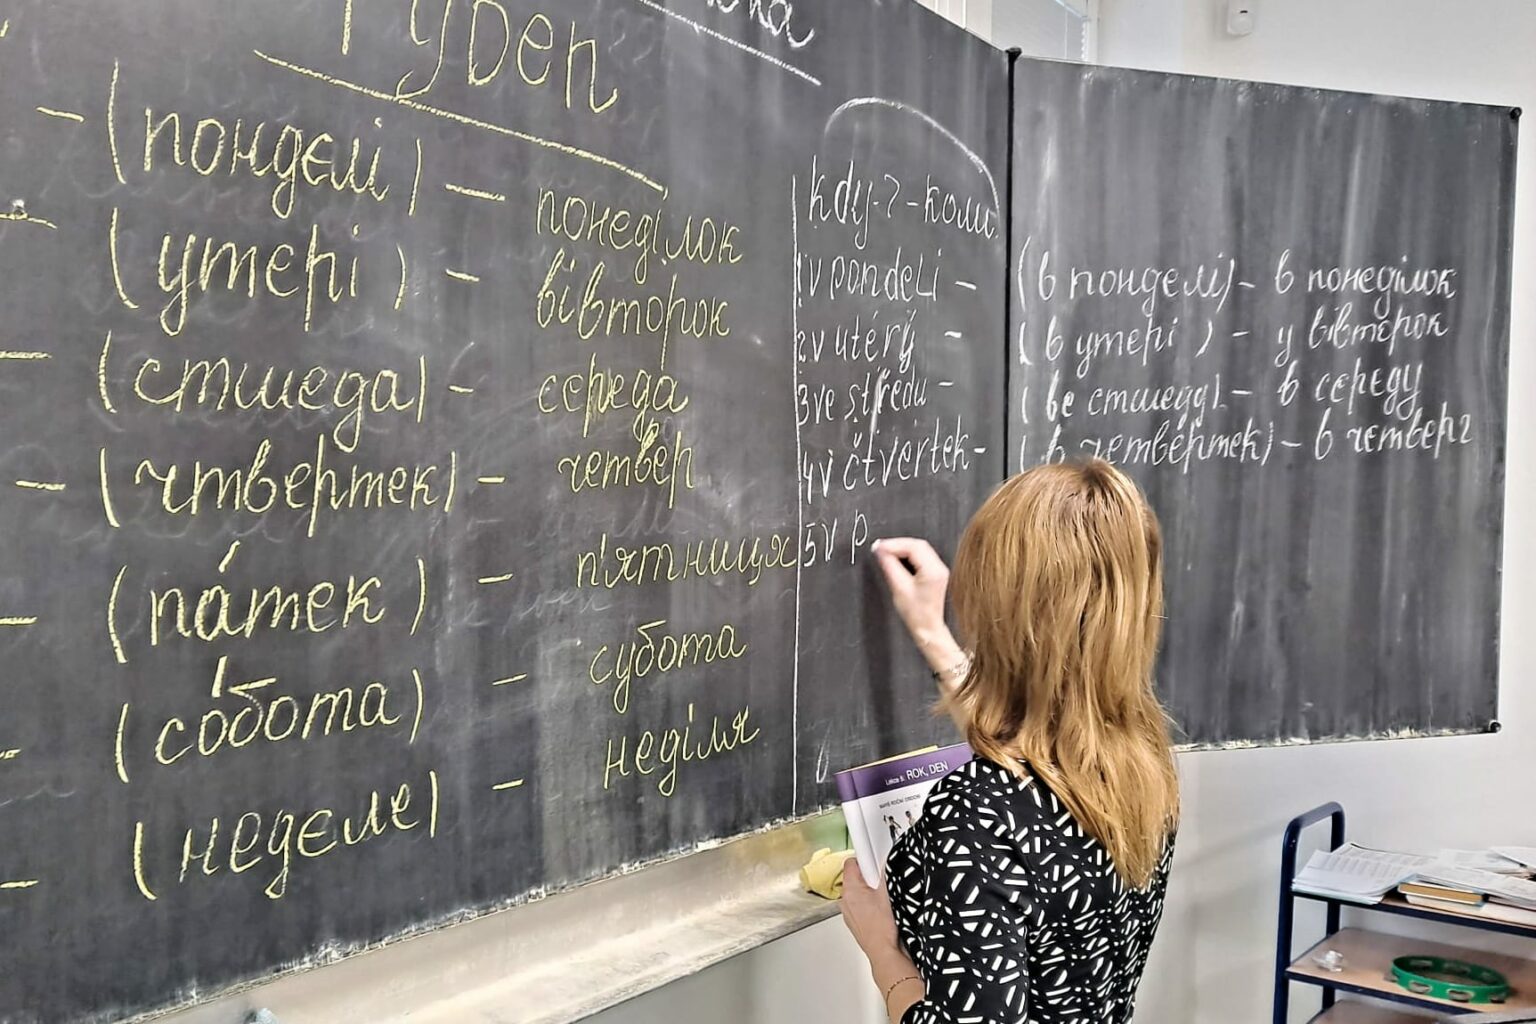 Týden
(пондєлі) - понеділок
(утері) - вівторок
(стшеда) - середа
(чтвертек) - четвер
(па́тек) - п'ятниця
(собота) - субота
(неделє) - неділя
kdy-?-коли
1 v pondělí -
2 v utérý -
3 ve středu -
4 v čtvertek -
5 v p
(в понделі) - в понеділок
(в утері) - у вівторок
(ве стшеду) - в середу
(в четвертек) - в четверг
Lekce 8: ROK, DEN